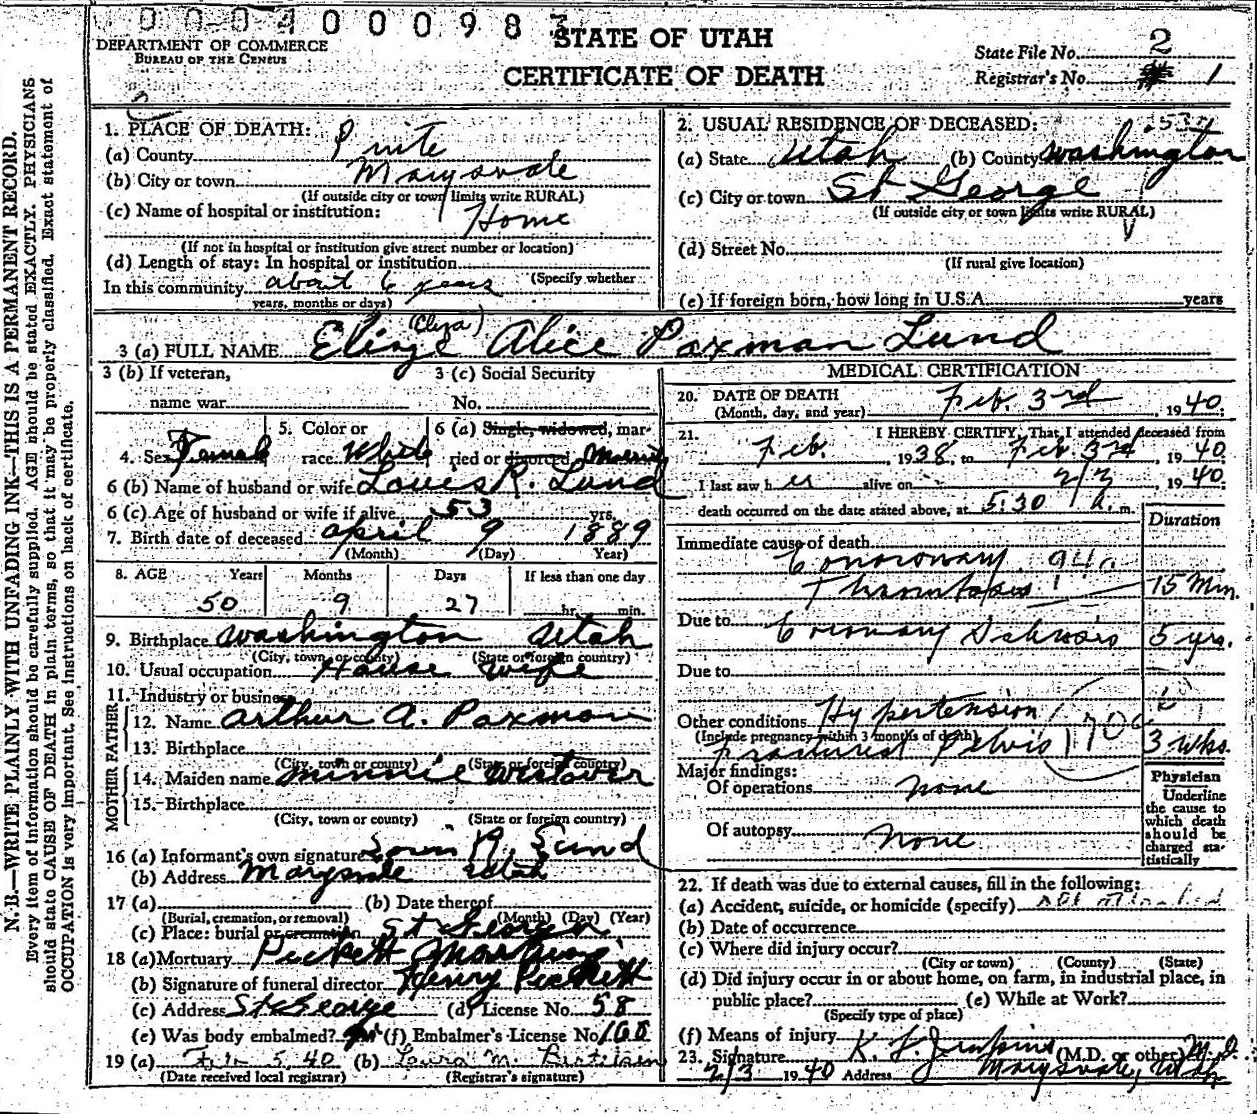 0 0 0 4 0 0 0 9 8 3
DEPARTMENT OF COMMERCE
BUREAU OF THE CENSUS
STATE OF UTAH
CERTIFICATE OF DEATH
State File No. 2
Registrar's No. 1
N. B.—WRITE PLAINLY WITH UNFADING INK—THIS IS A PERMANENT RECORD.
Every item of information should be carefully supplied. AGE should be stated EXACTLY. PHYSICIANS
should state CAUSE OF DEATH in plain terms, so that it may be properly classified. Exact statement of
OCCUPATION is very important. See instructions on back of certificate.
1. PLACE OF DEATH:
(a) County Piute
(b) City or town Marysvale
(If outside city or town limits write RURAL)
(c) Name of hospital or institution: Home
(If not in hospital or institution give street number or location)
(d) Length of stay: In hospital or institution
(Specify whether
In this community about 6 years
years, months or days)
2. USUAL RESIDENCE OF DECEASED:
(a) State Utah (b) County Washington
(c) City or town St George
(If outside city or town limits write RURAL)
(d) Street No.
(If rural give location)
(e) If foreign born, how long in U.S.A. years
(Eliza)
3 (a) FULL NAME Elize Alice Paxman Lund
3 (b) If veteran, name war
3 (c) Social Security No.
4. Sex Female
5. Color or race White
6 (a) Single, widowed, married or divorced Married
6 (b) Name of husband or wife Louis R. Lund
6 (c) Age of husband or wife if alive 53 yrs.
7. Birth date of deceased April 9 1889
(Month) (Day) Year)
8. AGE Years Months Days If less than one day
50 9 27 hr. min.
9. Birthplace Washington Utah
(City, town or county) (State or foreign country)
10. Usual occupation House wife
11. Industry or business
FATHER
12. Name Arthur A. Paxman
13. Birthplace
(City, town or county) (State or foreign country)
MOTHER
14. Maiden name Minnie Westover
15. Birthplace
(City, town or county) (State or foreign country)
16 (a) Informant's own signature Louis R. Lund
(b) Address Marysvale Utah
17 (a) (b) Date thereof
(Burial, cremation, or removal) (Month) (Day) (Year)
(c) Place: burial or cremation St George
18 (a) Mortuary Pickett Mortuary
(b) Signature of funeral director Henry Pickett
(c) Address St George (d) License No. 58
(e) Was body embalmed? (f) Embalmer's License No. 100
19 (a) Feb 5, 40 (b) Laura M. Bertelsen
(Date received local registrar) (Registrar's signature)
MEDICAL CERTIFICATION
20. DATE OF DEATH Feb. 3rd, 1940;
(Month, day, and year)
21. I HEREBY CERTIFY, That I attended deceased from
Feb. 1938, to Feb 3rd, 1940
I last saw her alive on 2/3 1940;
death occurred on the date stated above, at 5:30 A. m.
Duration
Immediate cause of death
Coronary 94a
Thrombosis 15 Min.
Due to Coronary Sclerosis 5 yrs.
Due to
Other conditions Hypertension
(Include pregnancy within 3 months of death)
Fractured Pelvis 3 Wks.
Major findings:
Of operations none
Of autopsy none
Physician
Underline
the cause to
which death
should be
charged sta-
tistically
22. If death was due to external causes, fill in the following:
(a) Accident, suicide, or homicide (specify)
(b) Date of occurrence
(c) Where did injury occur?
(City or town) (County) (State)
(d) Did injury occur in or about home, on farm, in industrial place, in
public place? (e) While at Work?
(Specify type of place)
(f) Means of injury
23. Signature K. L. Jenkins (M.D. or other) M.D.
2/3 1940 Address Marysvale, Utah